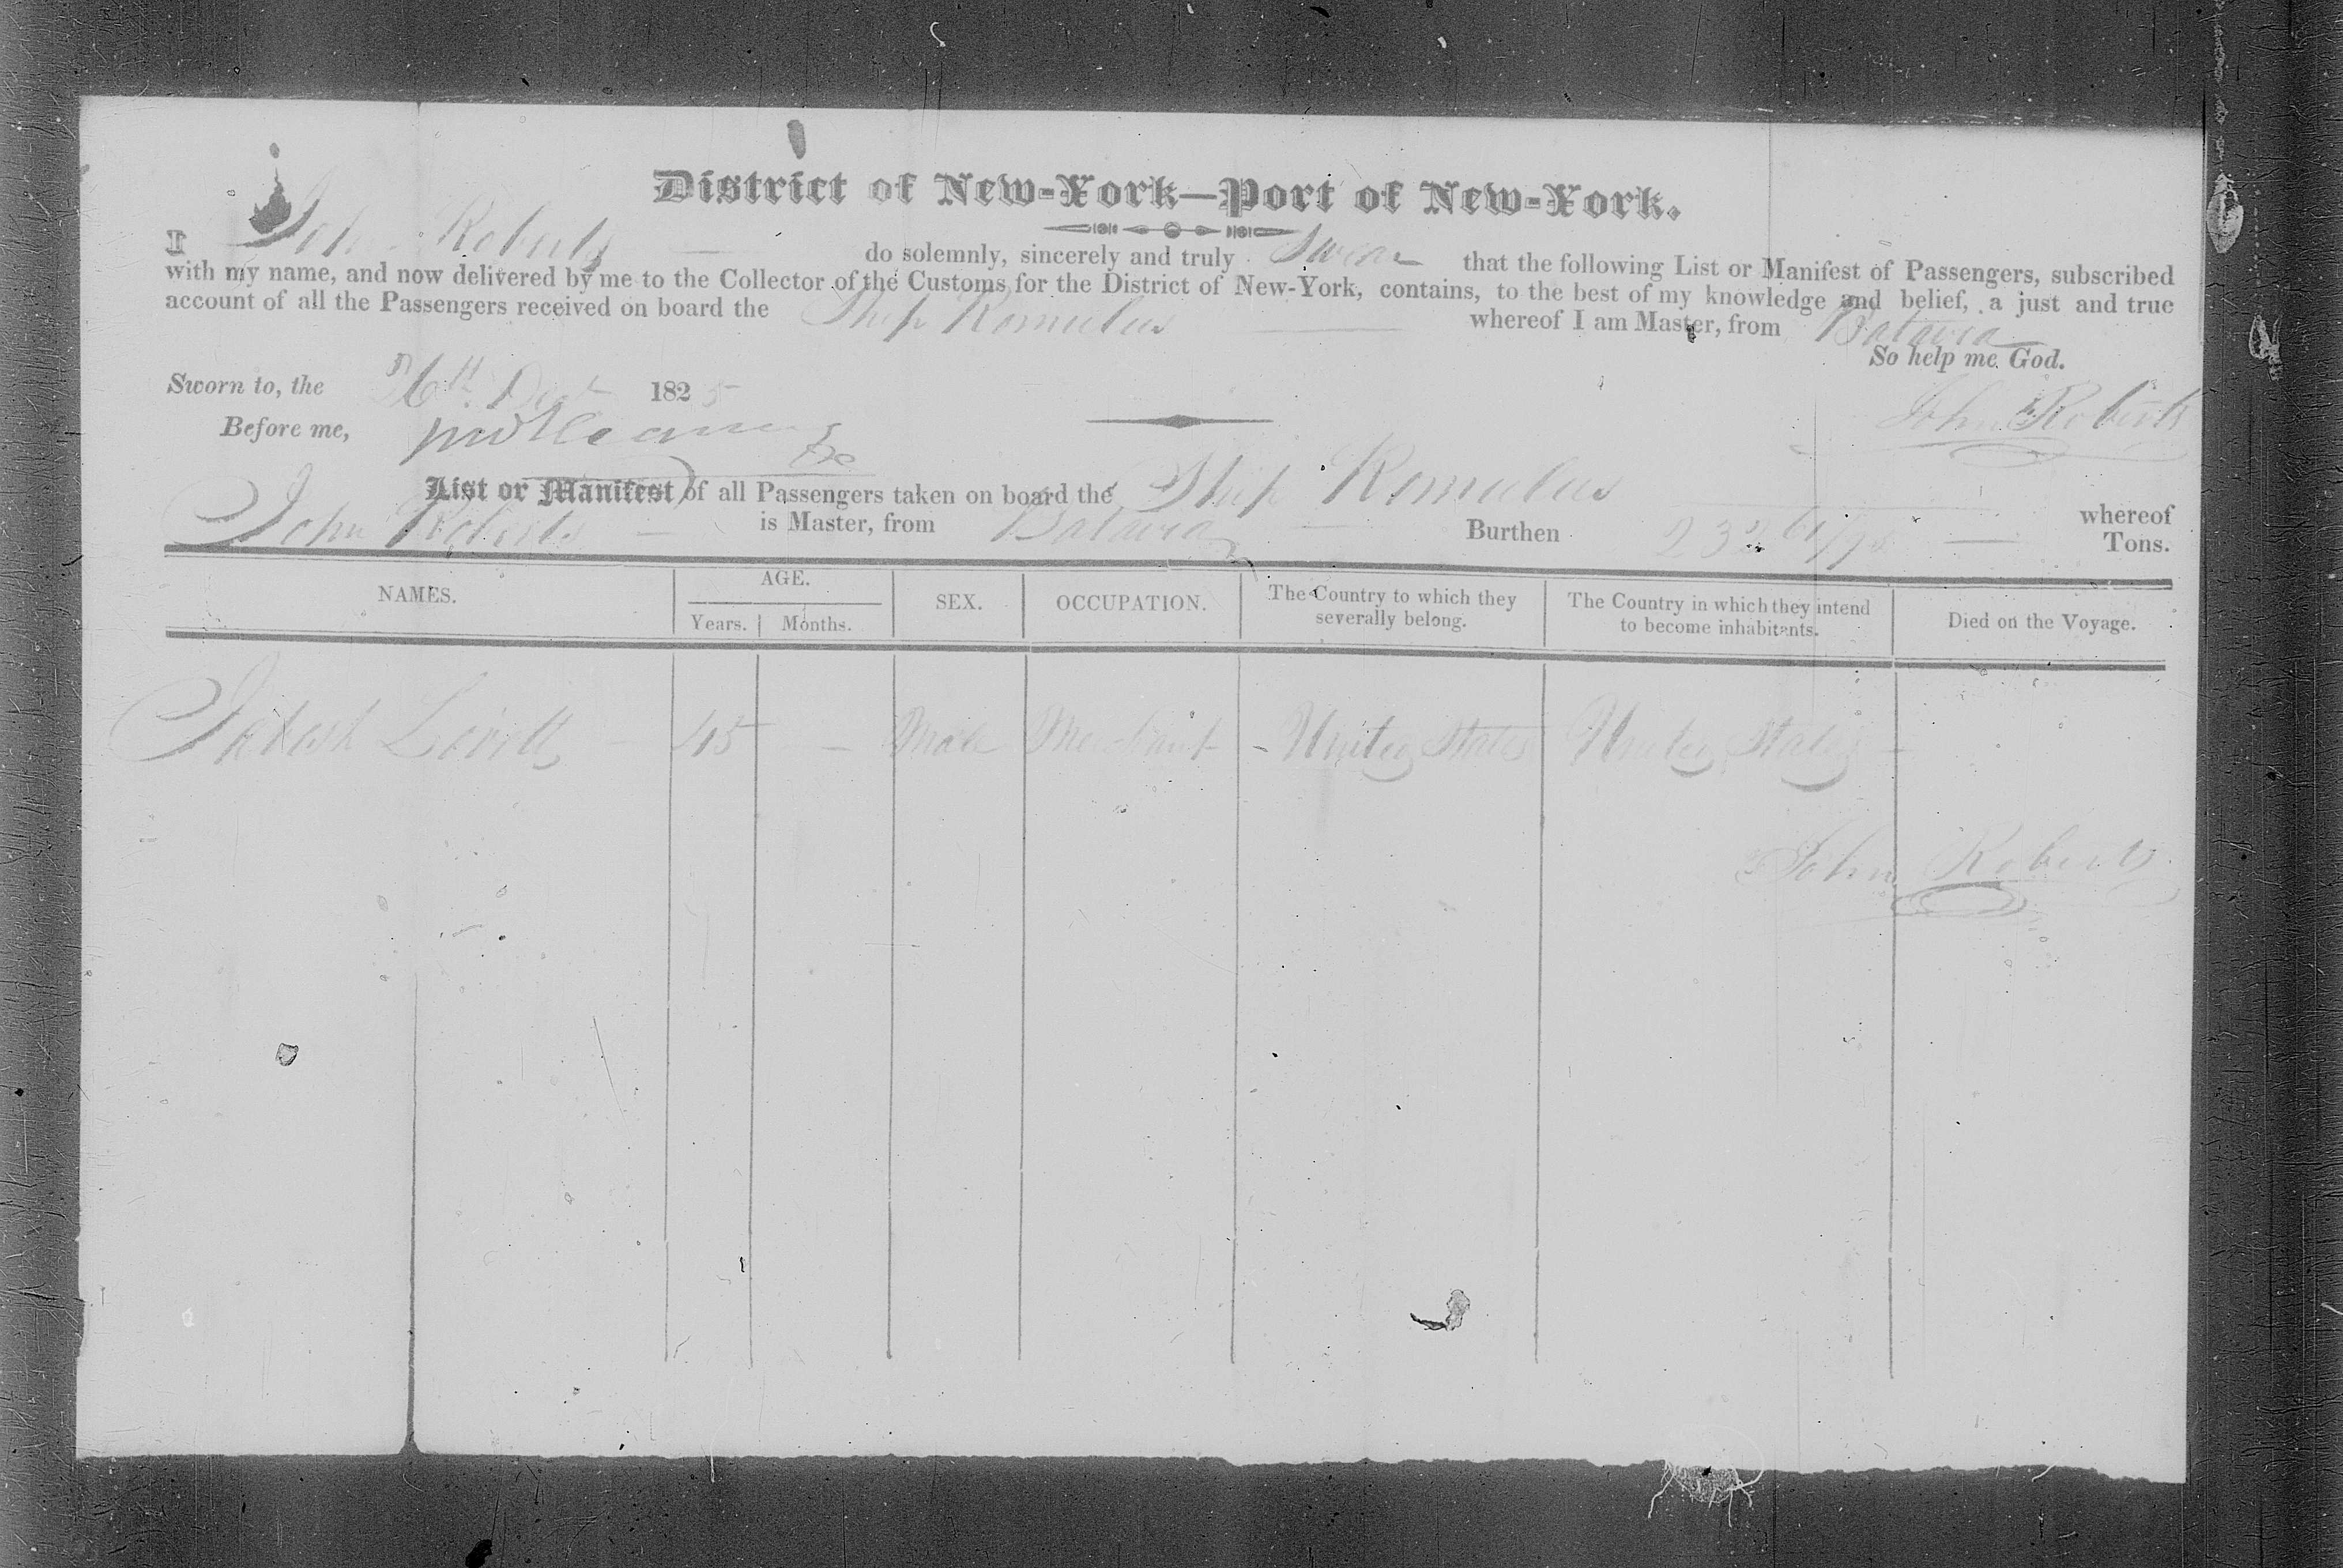 District of New-York—Port of New-York.
I John Roberts do solemnly, sincerely and truly Swear that the following List or Manifest of Passengers, subscribed
with my name, and now delivered by me to the Collector of the Customs for the District of New-York, contains, to the best of my knowledge and belief, a just and true
account of all the Passengers received on board the Ship Romulus whereof I am Master, from Batavia
So help me God.
Sworn to, the 26th Decr 1825
John Roberts
Before me,
List or Manifest of all Passengers taken on board the Ship Romulus whereof
John Roberts is Master, from Batavia Burthen Tons.
NAMES. AGE. SEX. OCCUPATION. The Country to which they severally belong. The Country in which they intend to become inhabitants. Died on the Voyage.
Years. Months.
45 - Male Merchant - United States United States -
John Roberts